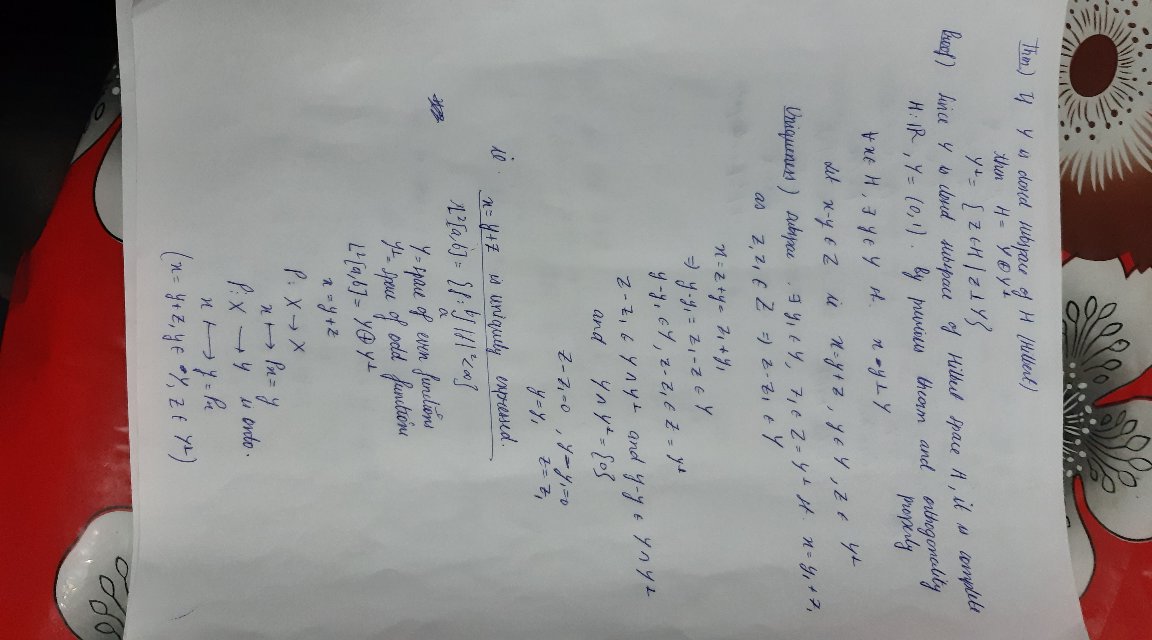 Thm) If Y is closed subspace of H (Hilbert)
then H = Y ⊕ Y⊥
Y⊥ = { Z ∈ H | Z ⊥ Y}
Proof) Since Y is closed subspace of Hilbert space H, it is complete
H: IR, Y = (0,1). By previous theorm and orthogonality
property
∀ x ∈ H, ∃ y ∈ Y st. x - y ⊥ Y
Let x-y ∈ Z ie x = y+z, y ∈ Y, z ∈ Y⊥
Uniqueness) . ∃ y₁ ∈ Y, z₁ ∈ Z = Y⊥ st. x = y₁ + z₁
as z, z₁ ∈ Z ⇒ z - z₁ ∈ Y
x = z + y = z₁ + y₁
⇒ y - y₁ = z₁ - z ∈ Y
y - y₁ ∈ Y, z - z₁ ∈ Z = Y⊥
z - z₁ ∈ Y ∩ Y⊥ and y - y ∈ Y ∩ Y⊥
and Y ∩ Y⊥ = {0}
z - z₁ = 0 , y = y₁ = 0
y = y₁ z = z₁
ie. x = y + z is uniquely expressed.
L²[a,b] = {f : ᵇ∫ₐ |f|² < ∞}
Y = space of even functions
Y⊥ = space of odd functions
L²[a,b] = Y ⊕ Y⊥
x = y + z
P: X → X
x ↦ Px = y
P: X → Y is onto.
x ↦ y = Px
(x = y + z, y ∈ Y, z ∈ Y⊥)